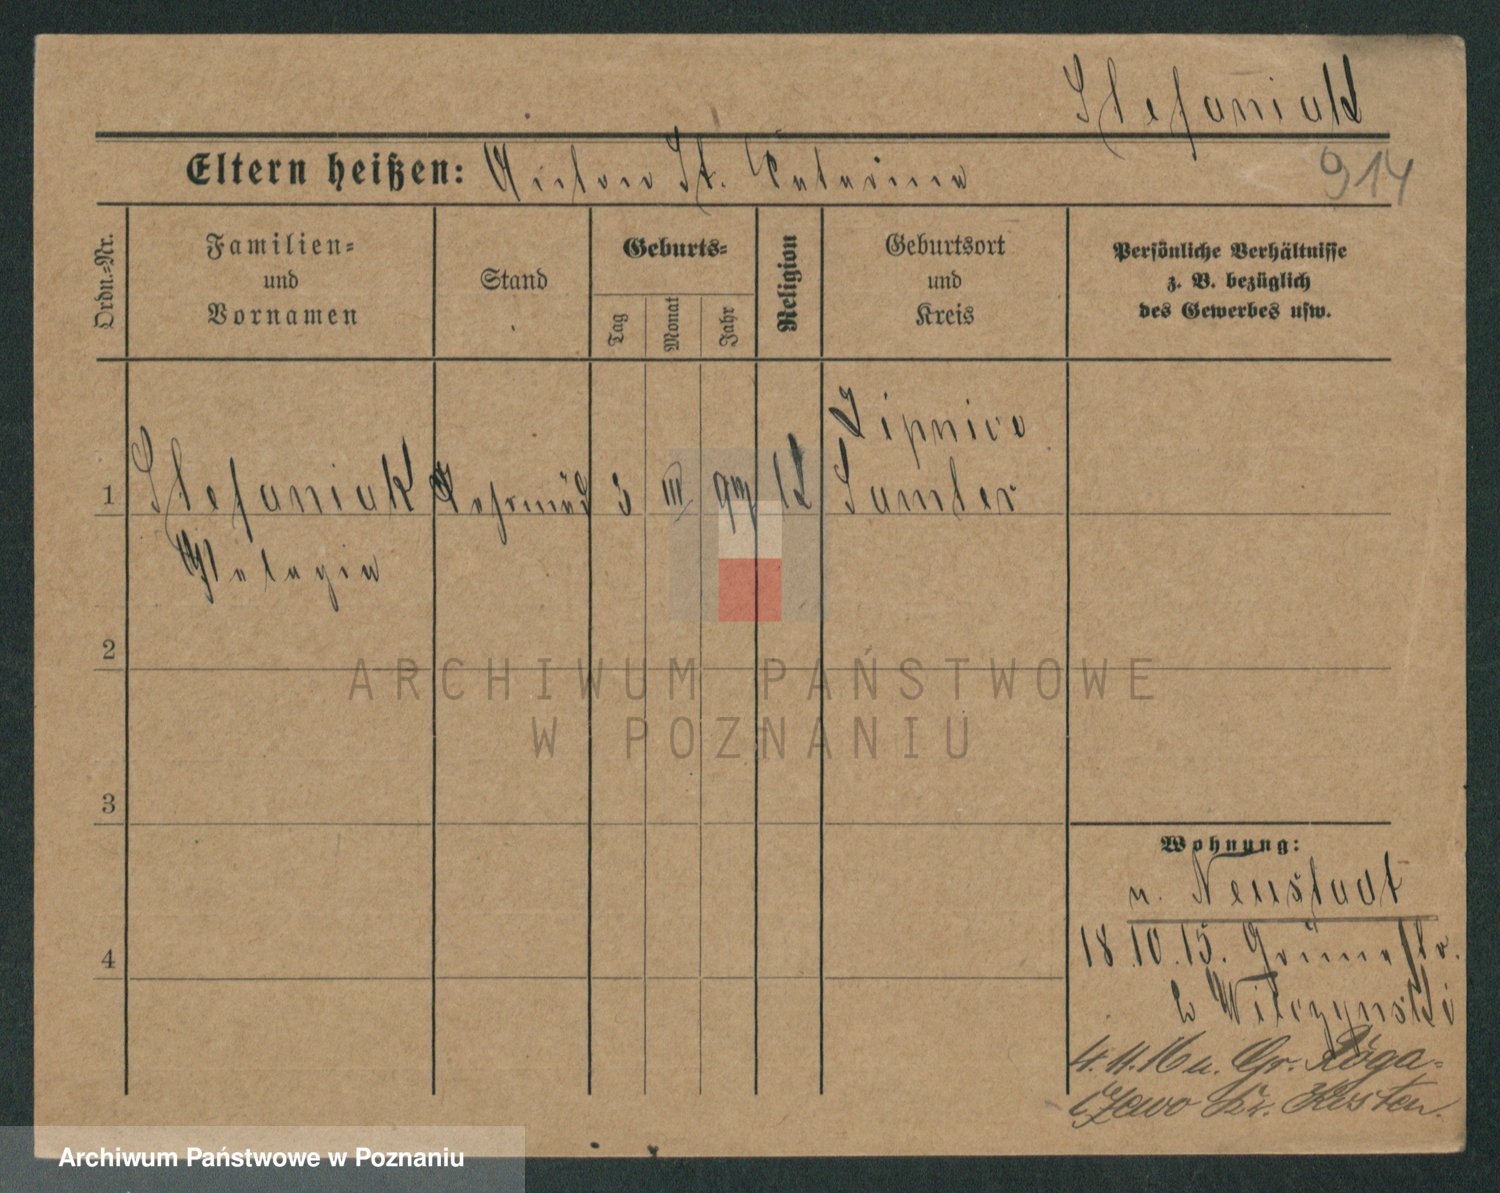 Stefaniak
Eltern heißen: Anton St. Katarina
914
Ordn.=Nr.
Familien=
und
Vornamen
Stand
Geburts=
Tag
Monat
Jahr
Religion
Geburtsort
und
Kreis
Persönliche Verhältnisse
z. B. bezüglich
des Gewerbes usw.
1
Stefaniak
Pelagia
3
III
97
k
Lipnica
Samter
2
3
4
Wohnung:
n. Neustadt
18.10.15. Grünestr.
b Wilczynski
4.11.16 n. Gr. Roga=
czewo Kr. Kosten.
ARCHIWUM PAŃSTWOWE
W POZNANIU
Archiwum Państwowe w Poznaniu